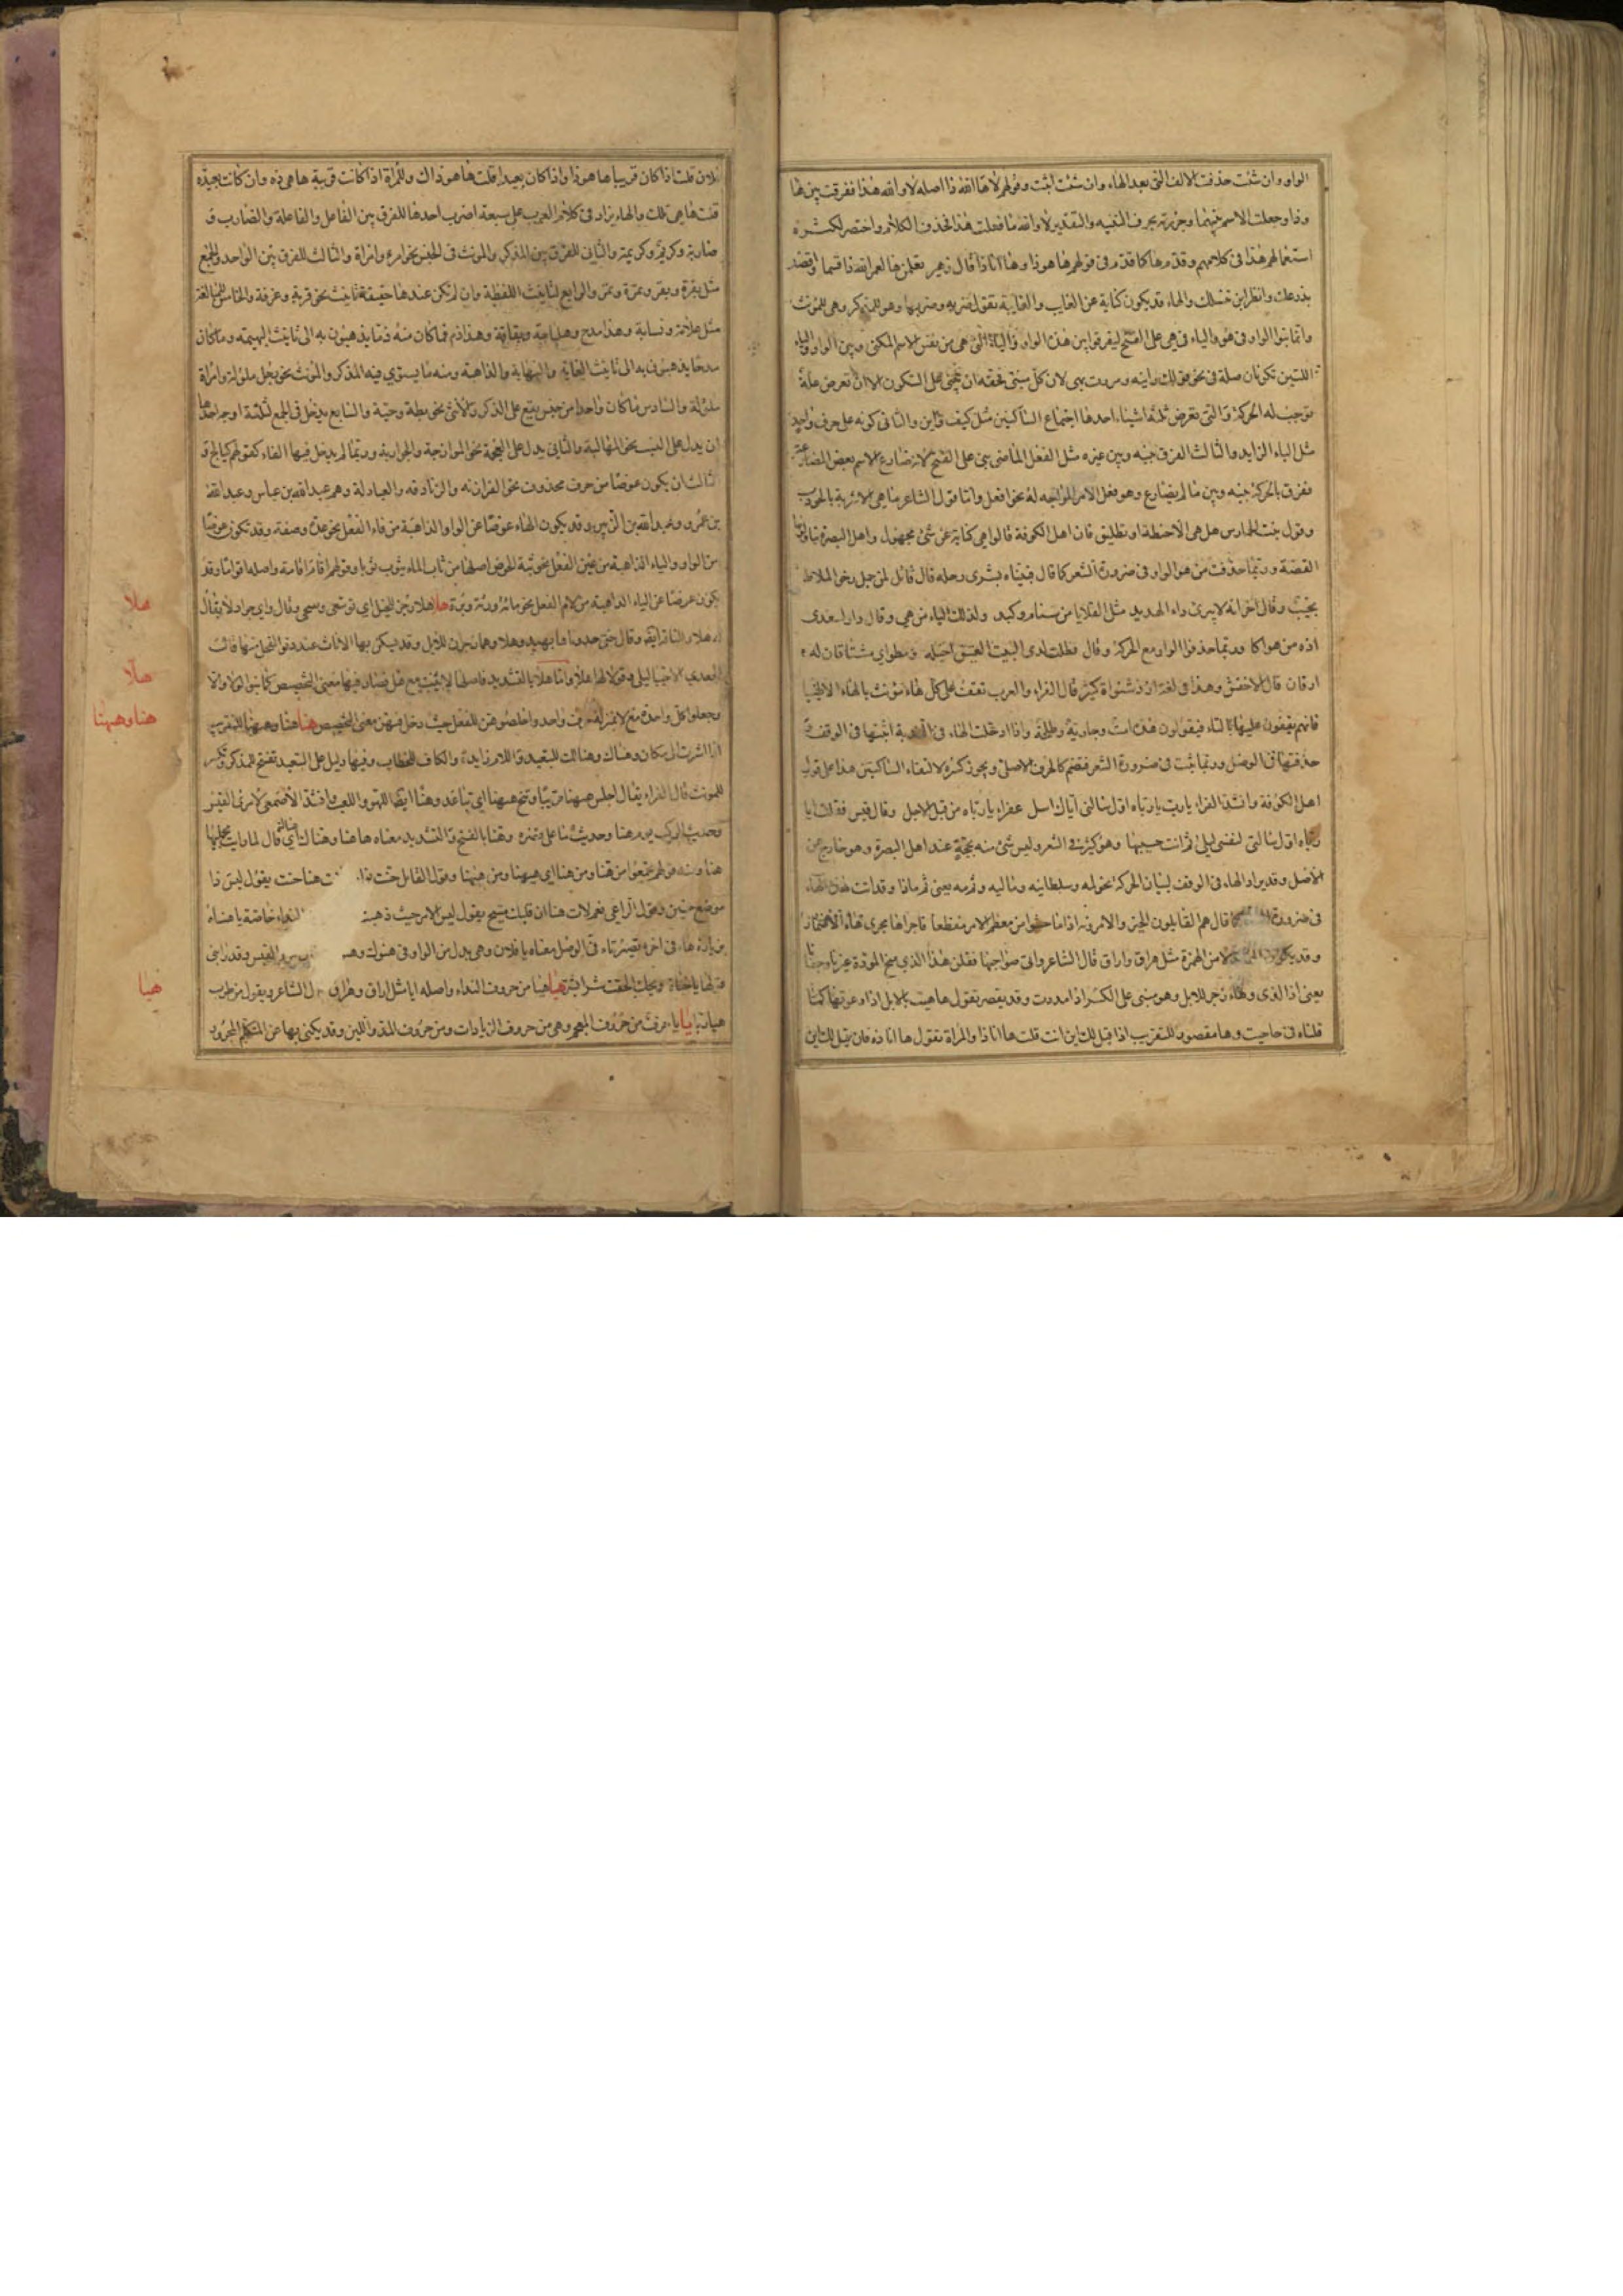 الواو وان شئت حذفت الالف التي بعد الهاء وان شئت اثبت وقولهم لاها الله ذا اصله لا والله هذا ففرقت بين ها
وذا وجعلت الاسم بينهما وجررته بحرف التنبيه والتقدير لا والله ما فعلت هذا فحذف الكلام واختصر لكثرة
استعمالهم هذا في كلامهم وقدم ها كما قدم في قولهم ها هوذا وها انا ذا قال زهير تعلمن ها لعمر الله ذا قسما فاقصد
بذرعك وانظر اين تنسلك والهاء قد يكون كناية عن الغايب والغايبة تقول ضربه وضربها وهو للمذكر وهي للمؤنث
وانما بنوا الواو في هو والياء في هي على الفتح ليفرقوا بين هذه الواو والياء التي هي من نفس الاسم المكني وبين الواو والياء
اللتين تكونان صلة في نحو قولك رايتهو ومررت بهي لان كل مبني فحقه ان يبنى على السكون الا ان تعرض علة
توجب له الحركة والتي تعرض ثلثة اشياء احدها اجتماع الساكنين مثل كيف واين والثاني كونه على حرف واحد
مثل الباء الزايدة والثالث الفرق بينه وبين غيره مثل الفعل الماضي بني على الفتح لانه ضارع الاسم بعض المضارعة
ففرق بالحركة بينه وبين ما لم يضارع وهو فعل الامر المواجه له نحو افعل واما قول الشاعر ما هي الا شربة بالحوءب
وقول بنت الحمارس هل هي الا حظة او تطليق فان اهل الكوفة قالوا هي كناية عن شئ مجهول واهل البصرة يتاولونها
القصة وربما حذفت من هو الواو في ضرورة الشعر كما قال فبيناه يشرى رحله قال قائل لمن جمل رخو الملاط
نجيب وقال اخر انه لا يبرئ داء الهدبد مثل القلايا من سنام وكبد وكذلك الياء من هي وقال دار لسعدى
اذه من هواكا وربما حذفوا الواو مع الحركة وقال فظلت لدى البيت العتيق اخيله ومطواي مشتاقان له
ارقان قال الاخفش وهذا في لغة ازد شنواة كثير قال الفراء والعرب تقف على كل هاء مؤنث بالهاء الا طيا
فانهم يقفون عليها بالتاء فيقولون هذه امت وجاريت وطلحت واذا ادخلت الهاء في الندبة اثبتها في الوقف و
حذفتها في الوصل وربما ثبت في ضرورة الشعر فتضم كالحرف الاصلي ويجوز كسره لالتقاء الساكنين هذا على قول
اهل الكوفة وانشد الفراء يا رب يا رباه اياك اسل عفراء يا رباه من قبل الاجل وقال قيس فقلت ايا
رباه اول سالتي لنفسي ليلى ثم انت حسيبها وهو كثير في الشعر وليس شئ منه بحجة عند اهل البصرة وهو خارج عن
الاصل وقد يراد الهاء في الوقف لبيان الحركة نحو لمه وسلطانيه وماليه وثم مه يعني ثم ماذا وقد اتت هذه الهاء
في ضرورة الشعر كما قال هم القايلون الخير والامرونه اذا ما خشوا من معظم الامر مفظعا فاجراها مجرى هاء الاضمار
وقد يكون الهاء بدلا من الهمزة مثل هراق واراق قال الشاعر واتى صواحبها فقلن هذا الذي منح المودة غيرنا وجفانا
يعني اذا الذي وهاء زجر للابل وهو مبني على الكسر اذا مددت وقد يقصر تقول هاهيت بالابل اذا دعوتها كما
قلناه في حاحيت وها مقصور للتقريب اذا قيل لك اين انت قلت ها انا ذا والمراة تقول ها انا ذه فان قيل لك اين
فلان قلت اذا كان قريبا ها هو ذا واذا كان بعيدا قلت ها هو ذاك وللمراة اذا كانت قريبة ها هي ذه وان كانت بعيدة
قلت ها هي تلك والهاء يزاد في كلام العرب على سبعة اضرب احدها للفرق بين الفاعل والفاعلة والضارب و
ضاربة وكريم وكريمة والثاني للفرق بين المذكر والمونث في الجنس نحو امرء وامراة والثالث للفرق بين الواحد والجمع
مثل بقرة وبقر وتمرة وتمر والرابع لتانيث اللفظة وان لم تكن عندها حقيقة تانيث نحو قربة وغرفة والخامس للمبالغة
مثل علامة ونسابة وهذا مدح وهلباجة وبقاقة وهذا ذم فما كان منه ذما يذهبون به الى تانيث البهيمة وما كان
مدحا يذهبون به الى تانيث الغاية والنهاية والداهية ومنه ما يستوي فيه المذكر والمؤنث نحو رجل ملولة وامراة
ملولة والسادس ما كان واحدا من جنس يقع على الذكر والانثى نحو بطة وحية والسابع يدخل في الجمع لثلثة اوجه احدها
ان يدل على النسب نحو المهالبة والثاني يدل على العجمة نحو الموازجة والجواربة وربما لم يدخل فيها الهاء كقولهم كيالج و
الثالث ان يكون عوضا من حرف محذوف نحو الفرازنة والزنادقة والعبادلة وهم عبد الله بن عباس وعبد الله
بن عمر وعبد الله بن الزبير وقد يكون الهاء عوضا عن الواو الذاهبة من فاء الفعل نحو عدة وصفة وقد تكون عوضا
من الواو والياء الذاهبة من عين الفعل نحو ثبة الحوض اصلها من ثاب الماء يثوب ثوبا وقولهم اقام اقامة واصله اقواما وقد
يكون عوضا عن الياء الذاهبة من لام الفعل نحو مائة ورئة وبرة هلا هلا زجر للخيل اي توسعي وتنحي وقال واي جواد لا يقال
له هلا وللناقة ايضا وقال حتى حدوناها بهيد وهلا وهما زجران للابل وقد يسكن بها الاناث عند دنو الفحل منها قالت
الجعدي الا حييا ليلى وقولا لها هلا واما هلا بالتشديد فاصلها لا بنيت مع هل فصار فيها معنى التحضيض كما بنوا لولا والا
وجعلوا كل واحدة مع لا بمنزلة حرف واحد واخلصوهن للفعل حيث دخل فيهن معنى التحضيض هنا هنا وههنا للتقريب
اذا اشرت الى مكان وهناك وهنالك للتبعيد واللام زايدة والكاف للخطاب وفيها دليل على التبعيد تفتح للمذكر وتكسر
للمونث قال الفراء يقال اجلس ههنا قريبا وتنح ههنا اي تباعد وهنا ايضا اللهو واللعب وانشد الاصمعي لامرئ القيس
وحديث الركب يوم هنا وحديث ما على قصره وهنا بالفتح والتشديد معناه هاهنا وهناك اي هنالك قال لما رايت محمليها
هنا ومنه قولهم تجمعوا من هنا ومن هنا اي من ههنا ومن ههنا وقول القايل حنت هنا حنت يقول ليس ذا
موضع حنين وقول الراعي نعم لات هنا ان قلبك متيح يقول ليس الامر حيث ذهبت النداء خاصة يا هناه
بزيادة هاء في اخره تصير تاء في الوصل معناه يا فلان وهي بدل من الواو في هنوك القيس وقد رابني
قولها يا هناه ويحك الحقت شرا بشر هيا هيا من حروف النداء واصله ايا مثل اراق وهراق قال الشاعر ويقول من طرب
هيا ربا يا يا حرف من حروف المعجم وهي من حروف الزيادات ومن حروف المد واللين وقد يكنى بها عن المتكلم المجرور
هلا
هلا
هنا وههنا
هيا